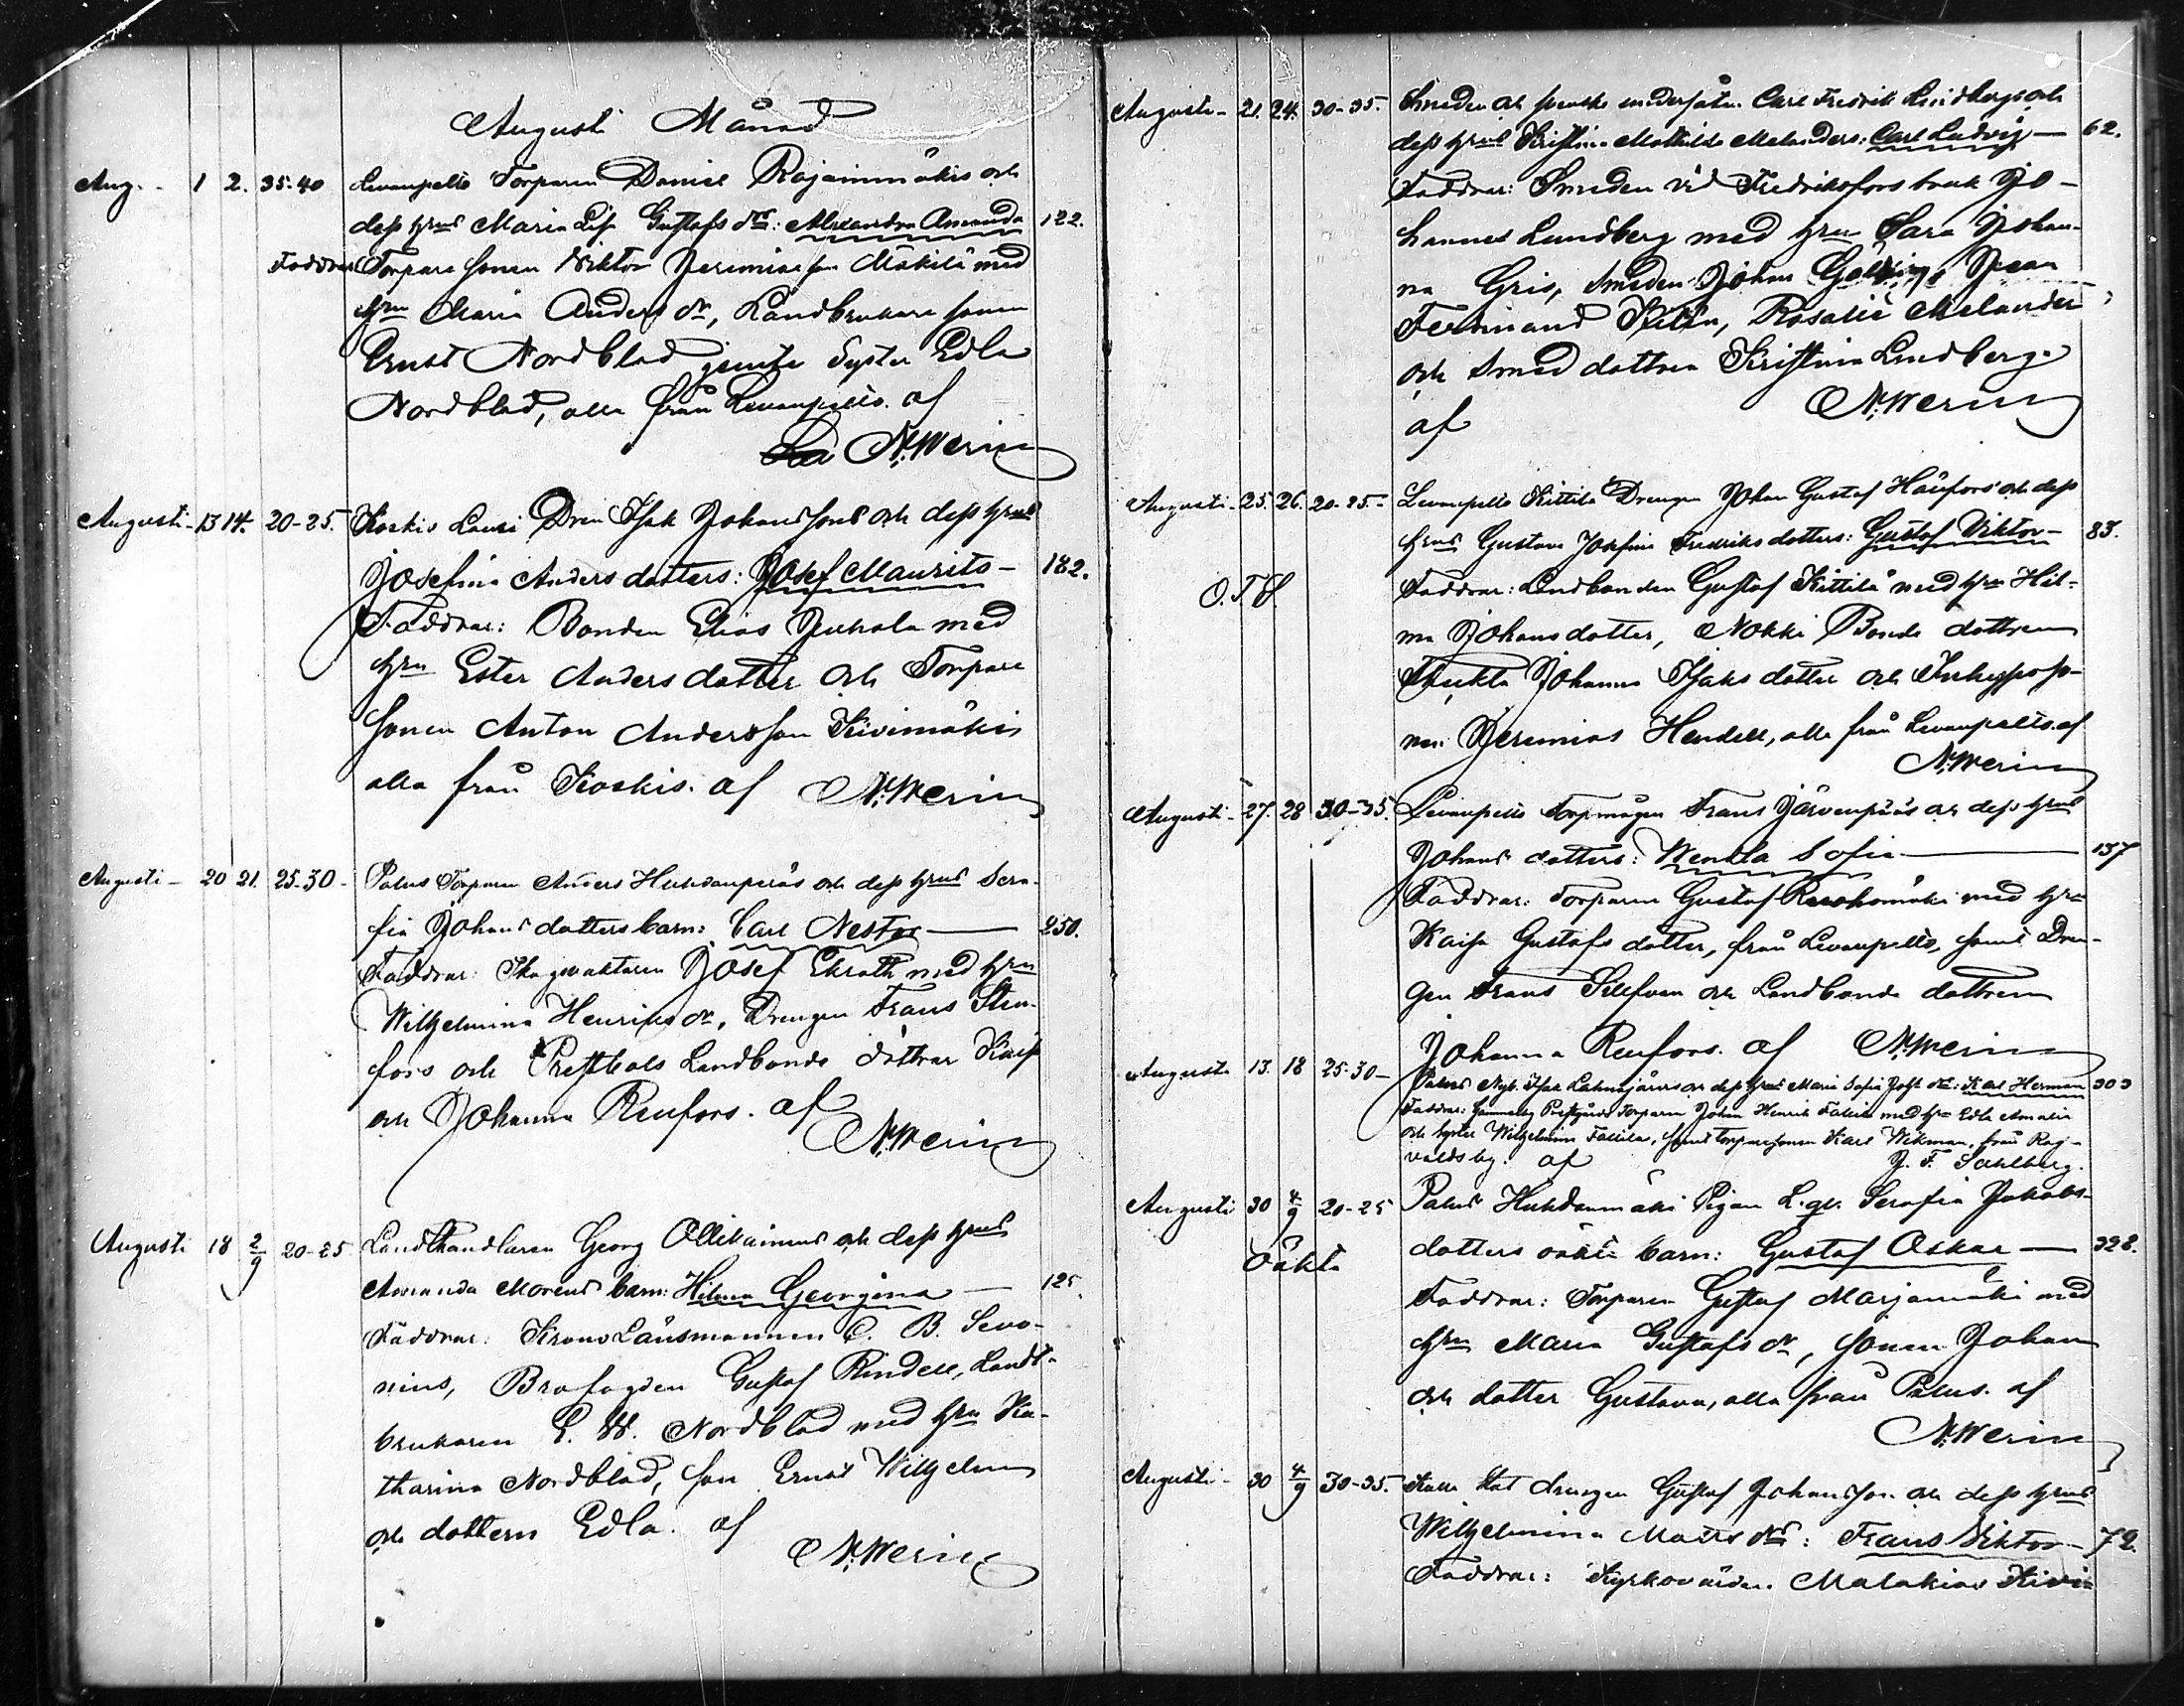 Augusti Månad
Aug. - 1 2. 35-40 Levanpelto Torparen Daniel Rajainmäkis och
dess hrus Maria Lis. Gustafs drs: Alexandra Amanda 122.
Faddrar Torpare sonen Viktor Jeremiasson Mäkelä med
hru Maria Anders dr, Landbrukare sonen
Ernst Nordblad jemte Syster Edla
Nordblad, alla från Levanpelto. af
N. Werin
Augusti - 13 14. 20-25. Koskis Lauri Drn Isak Johanssons och dess hrus
Josefina Anders dotters: Josef Maurits - 182.
Faddrar: Bonden Elias Juhola med
hru Ester Anders dotter och Torpare
sonen Anton Andersson Kivimäki
alla från Koskis. af N. Werin
Augusti - 20 21. 25-30 - Palus Torparen Anders Huhdanperäs och dess hrus Sera-
fia Johans dotters barn: Carl Nestor - 250.
Faddrar: Skogvaktaren Josef Ekroth med hru
Wilhelmina Henriks dr, Drengen Frans Sten-
fors och Prestbols Landbonde döttrar Kaisa
och Johanna Renfors. af
N. Werin
Augusti 18 2/9 20-25 Landthandlaren Georg Ollikainens och dess hrus
Amanda Morens barn: Hilma Georgina - 125.
Faddrar: Krono Länsmannen C. B. Sevo-
nius, Brofogden Gustaf Rindell, Landt-
brukaren E. W. Nordblad med hru Ka-
tharina Nordblad, son Ernst Wilhelm
och dottern Edla. af
N. Werin
Augusti - 21. 24. 30-35. Smeden och svenska undersåten Carl Fredrik Lindbergs och
dess hrus Kristina Mathilda Melanders: Carl Ludvig - 62.
Faddrar: Smeden vid Fredriksfors bruk Jo-
hannes Lundberg med hru Sara Johan-
na Gris, Smeden Johan Jean
Ferdinand Rosalie Melander
och Smed dottren Kristina Lindberg.
af N. Werin
Augusti - 25. 26. 20-25. - Levanpelto Kittilä Drengen Johan Gustaf Häufors och dess
hrus Gustava Josefina Fredriks dotters: Gustaf Viktor - 83.
O.T.S. Faddrar: Landbonden Gustaf Kittilä med hru Hil-
ma Johans dotter, Nokki Bonde dottren
Johanna Isaks dotter och Inhyseso-
nen Jeremias Hendell, alla från Levanpelto. af
N. Werin
Augusti - 27. 28 30-35. Levanpelto Torpmågen Frans Järvenpääs och dess hrus
Johans dotters: Wendla Sofia - 157
Faddrar: Torparen Gustaf med hru
Kaisa Gustafs dotter, från Levanpelto, samt Dren-
gen Frans och Landbonde dottren
Johanna Renfors. af N. Werin
Augusti 13. 18 25-30 - Palus Nyb. Isak Lahnajärvis och dess hrus Maria Sofia Joh. drs: Karl Herman 303
Faddrar: Prestgårds Torparen Johan Henrik Fallila med hru Edla Amalia
och syster Wilhelmina Fallila, samt Torparesonen Karl Wikman, från Rag-
valds by. af J. F. Sahlberg.
Augusti 30 4/9 20-25 Palus Huhdanmäki Pigan L.gk. Serafia Jakobs
Oäkta dotters oäkta barn: Gustaf Oskar - 328.
Faddrar: Torparen Gustaf Marjamäki med
hru Maria Gustafs dr, sonen Johan
och dotter Gustava, alla från Palus. af
N. Werin
Augusti - 30 4/9 30-35. Stat drengen Gustaf Johansson och dess hrus
Wilhelmina Matts drs: Frans Viktor - 72.
Faddrar: Kyrkovärden Malakias Kivi-